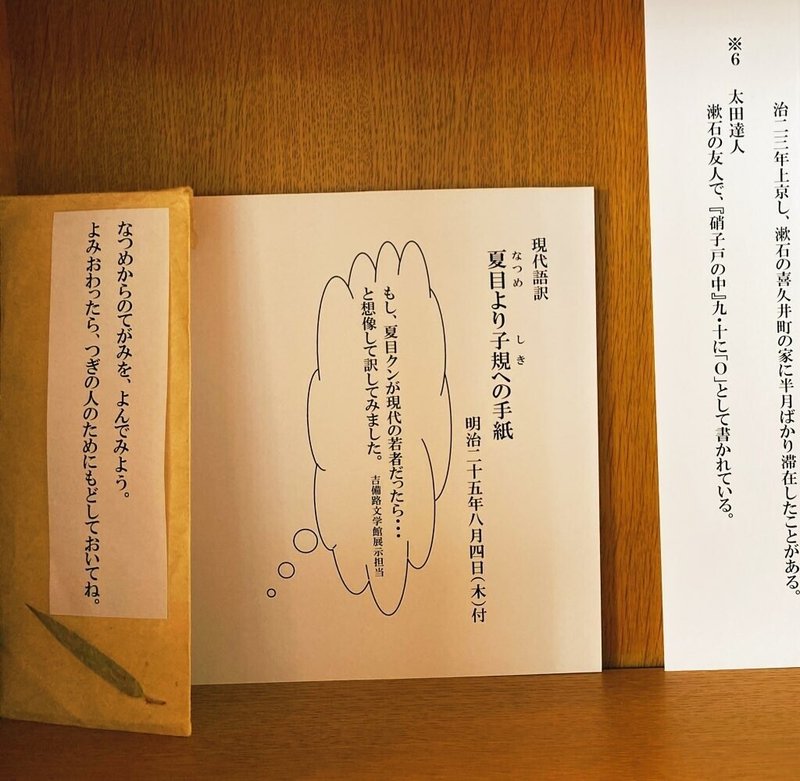 治二三年上京し、漱石の喜久井町の家に半月ばかり滞在したことがある。
※6　太田達人
漱石の友人で、『硝子戸の中』九・十に「O」として書かれている。
現代語訳
夏目より子規への手紙
なつめ
しき
明治二十五年八月四日(木)付
もし、夏目クンが現代の若者だったら・・・
と想像して訳してみました。
吉備路文学館展示担当
なつめからのてがみを、よんでみよう。
よみおわったら、つぎの人のためにもどしておいてね。